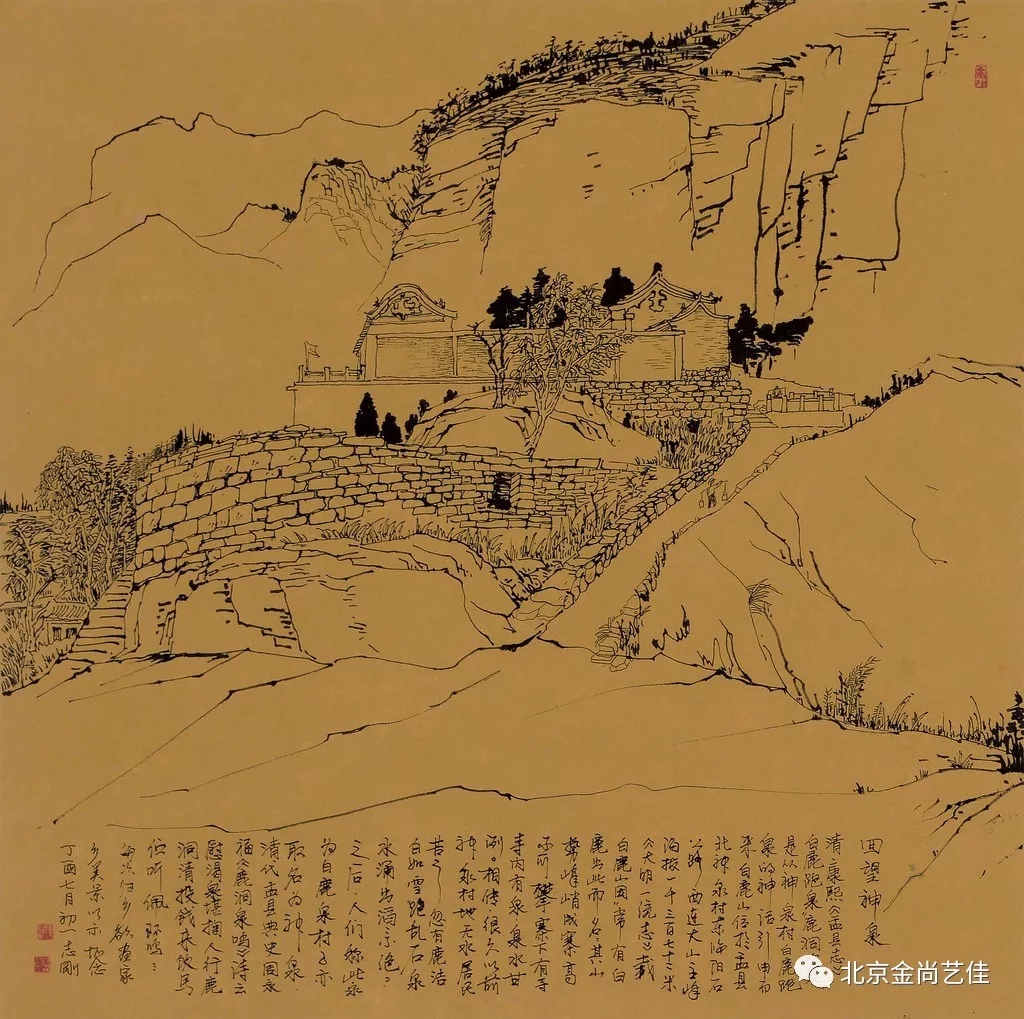 回望神泉
清康熙《盂县志
白鹿跑泉鹿洞
是从神泉村白鹿跑
泉的神话引申而
来白鹿山位於盂县
北神泉村东阳石
公路西连大山主峰
海拔一千三百七十三米
《大明一统志》载
白鹿山因常有白
鹿出此而名其山
群峰峭成寨高
不可攀寨下有寺
寺内有泉泉水甘
洌。相传很久以前
神泉村地无水居民
苦之忽有鹿洁
白如雪跑乱石泉
水涌出滔滔不绝。
之后人们称此泉
为白鹿泉村子亦
取名为神泉.
清代盂县典史周永
福《鹿洞泉鸣》诗云
慰渴泉堪掬人行鹿
洞清投钱来饮马
伫听佩环鸣:
每次归乡欲画家
乡美景以示怀念
丁酉七月初一志刚
北京金尚艺佳